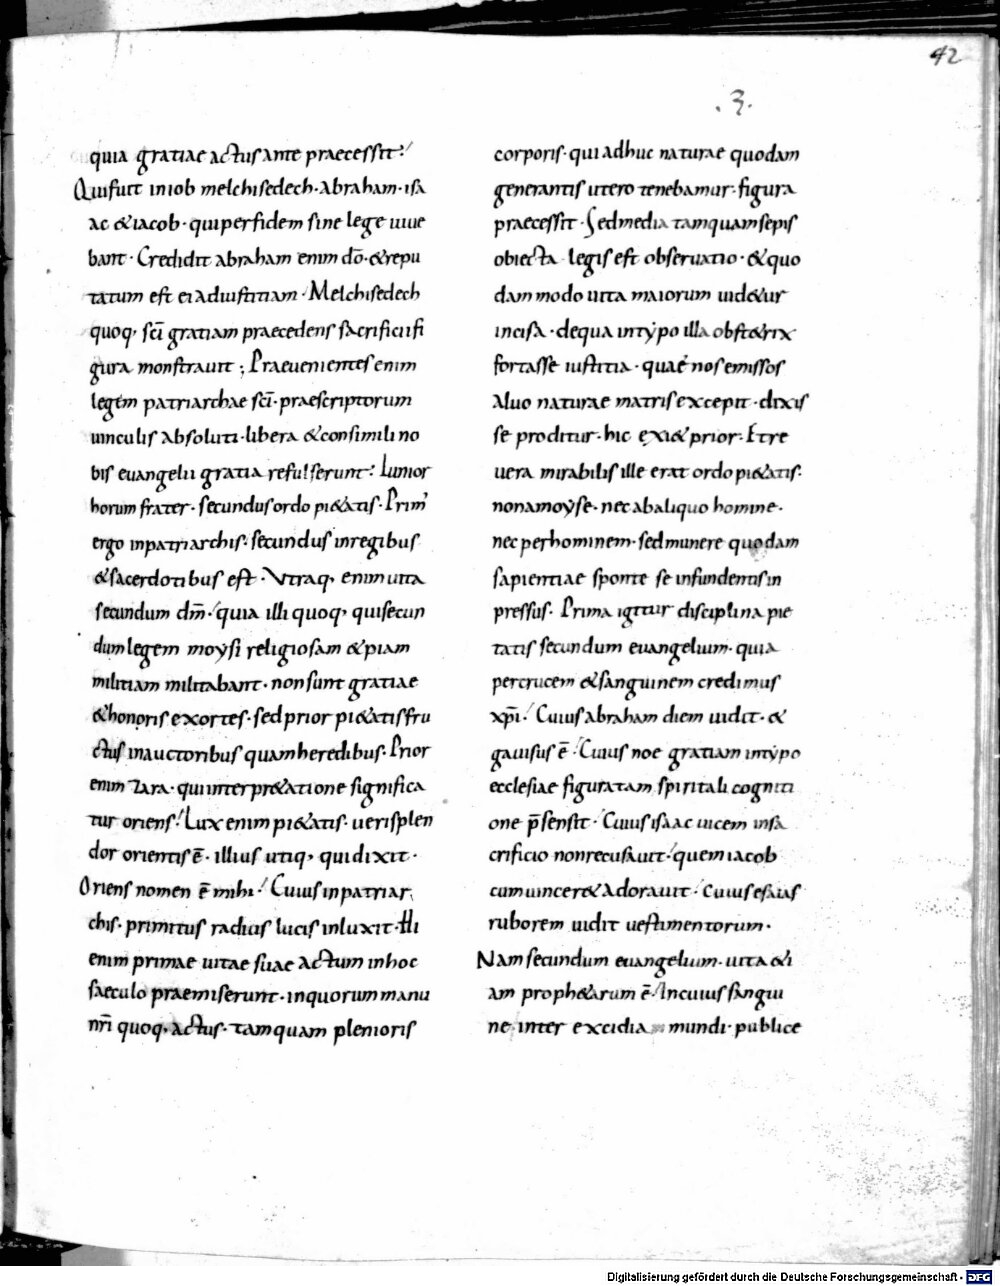 42
.3.
quia gratiae actus ante praecessit?
Quifuit iniob melchisedech·abraham·isa
ac &iacob·quiperfidem sine lege uiue
bant· Credidit abraham enim dō·&repu
tatum est eiadiustitiam·Melchisedech
quoq, scī gratiam praecedens sacrificii fi
gura monstrauit; Praeuenientes enim
legem patriarchae scī·praescriptorum
uinculis absoluti·libera &consimili no
bis euangelii gratia refulserunt: Iunior
horum frater·secundus ordo pi&atis·Prim'
ergo inpatriarchis·secundus inregibus
&sacerdotibus est·Vtraq, enim uita
secundum dm̄·quia illi quoq, quisecun
dum legem moysi religiosam &piam
militiam militabant·non sunt gratiae
&honoris exortes·sed prior pi&atis fru
ctus inauctoribus quam heredibus·Prior
enim zara·qui interpr&atione significa
tur oriens! Lux enim pi&atis·ueri splen
dor orientis ē·illius utiq, qui dixit·
Oriens nomen ē mihi! Cuius inpatriar
chis·primitus radius lucis inluxit·Hi
enim primae uitae suae actum inhoc
saeculo praemiserunt·inquorum manu
nr̄i quoq, actus·tamquam plenioris
corporis·qui adhuc naturae quodam
generantis utero tenebamur·figura
praecessit·Sed media tamquam sepis
obiecta legis est obseruatio·&quo
dam modo uita maiorum uid&ur
incisa·dequa intypo illa obst&rix
fortasse iustitia·quae nos emissos
aluo naturae matris excepit·dixis
se proditur·hic exi& prior·Et re
uera mirabilis ille erat ordo pi&atis·
non amoyse·nec abaliquo homine·
nec per hominem·sed munere quodam
sapientiae sponte se infundentis in
pressus·Prima igitur disciplina pie
tatis secundum euangelium·quia
per crucem &sanguinem credimus
xp̄i! Cuius abraham diem uidit·&
gauisus ē! Cuius noe gratiam intypo
ecclesiae figuratam spiritali cogniti
one p̄sensit! Cuius isaac uicem insa
crificio non recusauit! quem iacob
cum uincer& adorauit! Cuius esaias
ruborem uidit uestimentorum·
Nam secundum euangelium·uita &i
am proph&arum ē! Incuius sangui
ne inter excidia mundi·publice
Digitalisierung gefördert durch die Deutsche Forschungsgemeinschaft - DFG